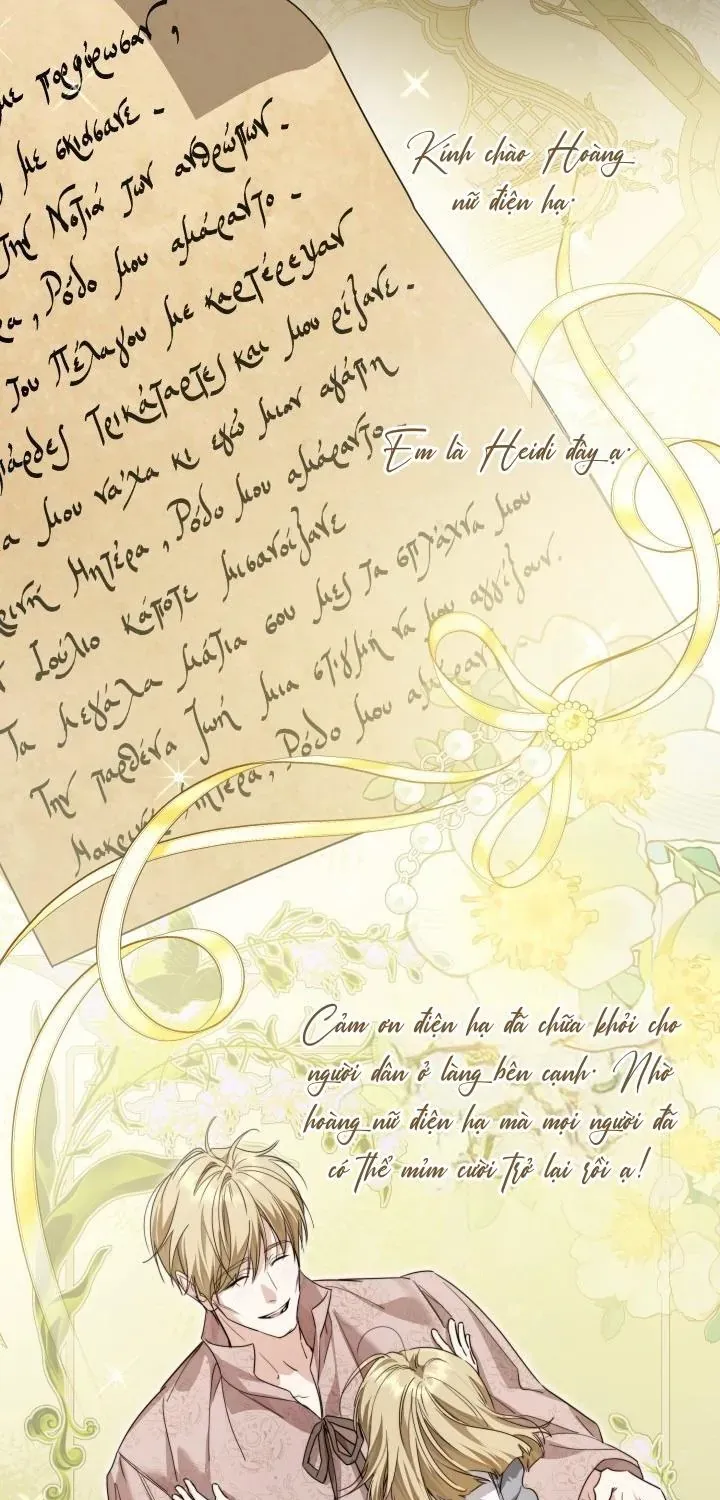 με πορφύρωσαν,
με σκιάσανε -
την Νοτιά των ανθρώπων -
, Ρόδο μου αμάραντο -
του Πέλαγου με καρτέρεψαν
τρικάταρτες και μου ρίξανε -
μου να'χα κι εγώ μιαν αγάπη
Μητέρα, Ρόδο μου αμάραντο -
Ιούλιο κάποτε μισανοίξανε
Τα μεγάλα μάτια σου μες τα σπλάχνα μου
Την παρθένα ζωή μια στιγμή να μου αγγίξουν.
Μακρινή Μητέρα, Ρόδο μου αμάραντο -
Kính chào Hoàng
nữ điện hạ.
Em là Heidi đây ạ.
Cảm ơn điện hạ đã chữa khỏi cho
người dân ở làng bên cạnh. Nhờ
hoàng nữ điện hạ mà mọi người đã
có thể mỉm cười trở lại rồi ạ!